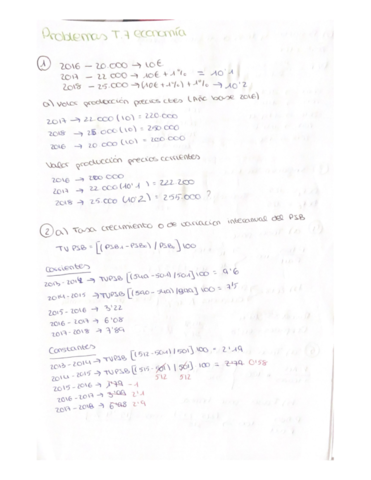 Problemas T7 economía
① 2016 – 20.000 → 10€
2017 – 22.000 → 10€ + 1% = 10'1
2018 – 25.000 → (10€ + 1%) + 1% → 10'2
a) Valor producción precios (Año base 2016)
2017 → 22.000 (10) = 220.000
2018 → 25.000 (10) = 250.000
2016 → 20.000 (10) = 200.000
Valor producción precios corrientes
2016 → 200.000
2017 → 22.000 (10'1) = 222.200
2018 → 25.000 (10'2) = 255.000 ?
② a) Tasa crecimiento o de variación interanual del PIB
TV PIB = [(PIB₁ - PIB₀) / PIB₀] 100
Corrientes
2013-2014 → TVPIB [(549-501)/501] 100 = 9'6
2014-2015 → TVPIB 100 = 7'5
2015-2016 → 3'22
2016-2017 → 6'08
2017-2018 → 7'89
Constantes
2013-2014 → TVPIB [(512-501)/501] 100 = 2'19
2014-2015 → TVPIB 100 = 0'58
512 512
2015-2016 → -1
2016-2017 → 2'1
2017-2018 → 2'9